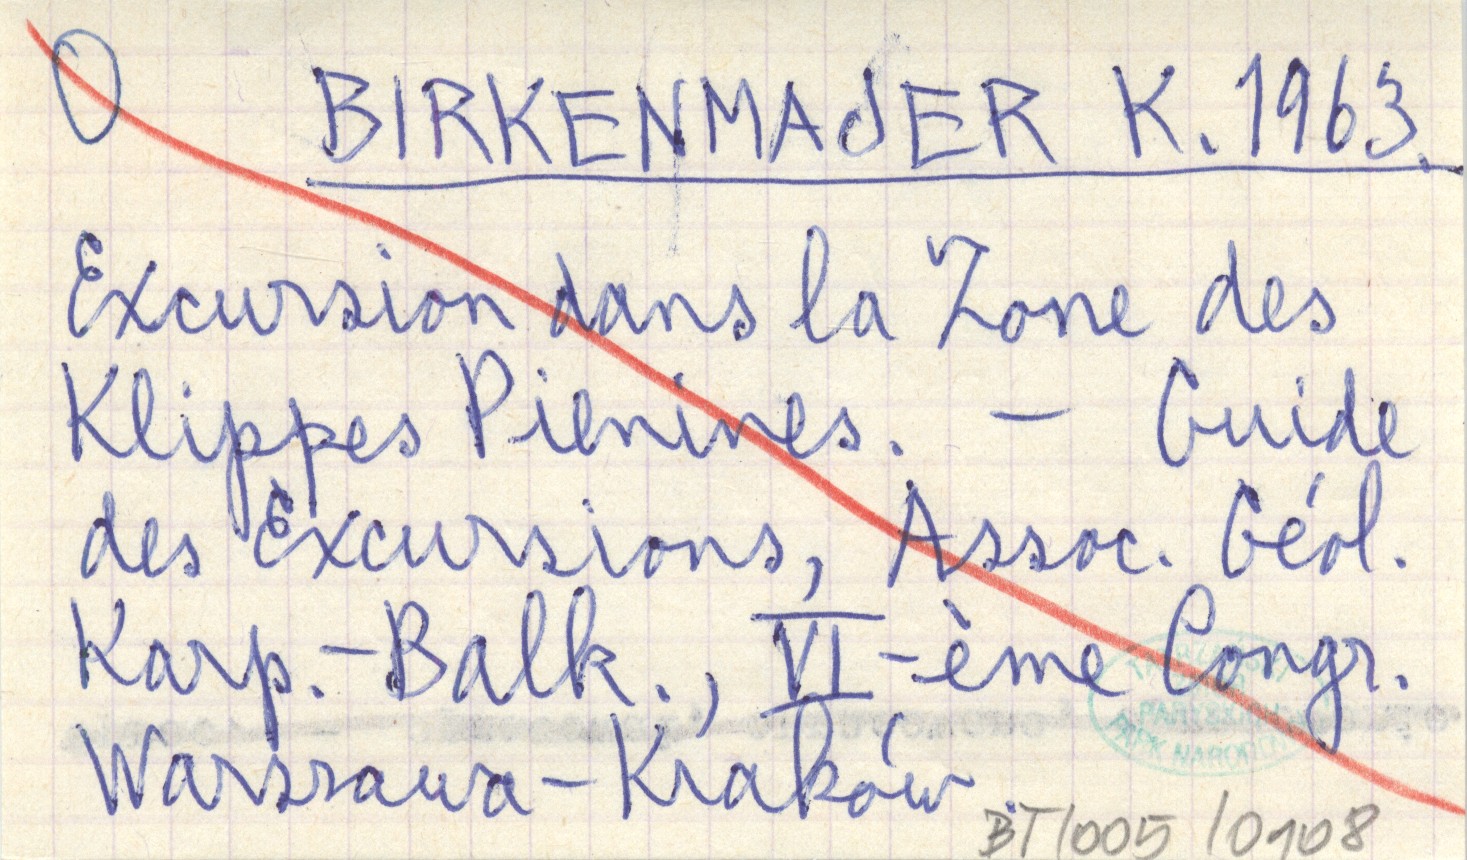 O BIRKENMAJER K. 1963.
Excursion dans la Zone des
Klippes Pienines. – Guide
des Excursions, Assoc. Géol.
Karp.-Balk., VI-ème Congr.
Warszawa-Kraków
PARK NARODOWY
BT/005/0108